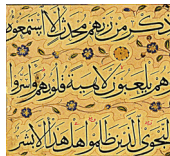 ذِكْرٍ مِنْ رَبِّهِمْ مُحْدَثٍ إِلَّا اسْتَمَعُوهُ
وَهُمْ يَلْعَبُونَ لَاهِيَةً قُلُوبُهُمْ وَأَسَرُّوا
النَّجْوَى الَّذِينَ ظَلَمُوا هَلْ هَذَا إِلَّا بَشَرٌ